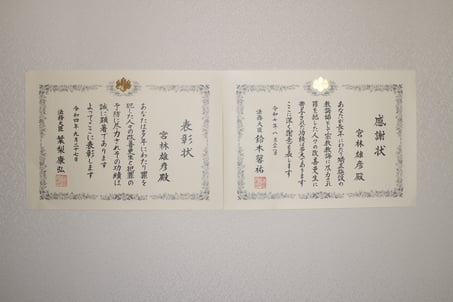 感謝状
宮林雄彦 殿
あなたが長年にわたり矯正施設の
教誨師として宗教教誨に尽力され
罪を犯した人々の改善更生に
寄与された功績は多大であります
ここに深く謝意を表します
令和七年八月
法務大臣 鈴木馨祐
表彰状
宮林雄彦 殿
あなたは多年にわたり罪を
犯した人々の改善更生と犯罪の
予防に尽力されその功績は
誠に顕著であります
よってここに表彰します
令和四年九月二十七日
法務大臣 葉梨康弘